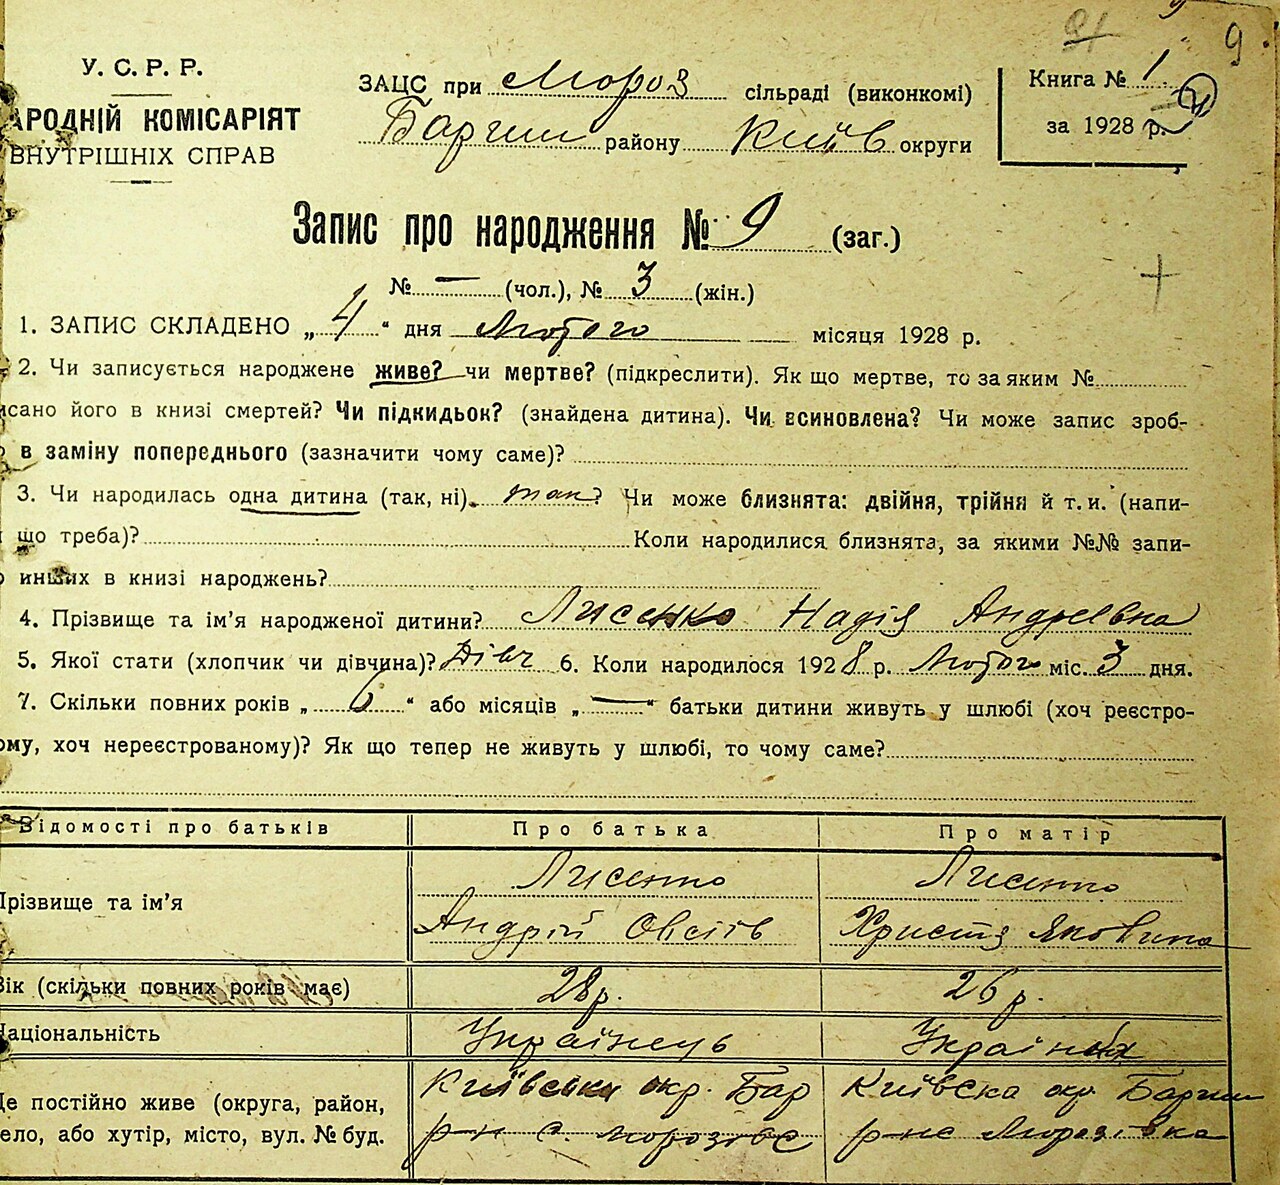 9
У. С. Р. Р.
АРОДНІЙ КОМІСАРІЯТ
ВНУТРІШНІХ СПРАВ
ЗАЦС при Мороз сільраді (виконкомі)
Баришп району Київ округи
Книга № 1
за 1928 р. 2
Запис про народження № 9 (заг.)
№ — (чол.), № 3 (жін.)
1. ЗАПИС СКЛАДЕНО „4“ дня Лютого місяця 1928 р.
2. Чи записується народжене живе? чи мертве? (підкреслити). Як що мертве, то за яким №
исано його в книзі смертей? Чи підкидьок? (знайдена дитина). Чи всиновлена? Чи може запис зроб-
в заміну попереднього (зазначити чому саме)?
3. Чи народилась одна дитина (так, ні). так? Чи може близнята: двійня, трійня й т. и. (напи-
що треба)? Коли народилися близнята, за якими №№ запи-
о инших в книзі народжень?
4. Прізвище та ім'я народженої дитини? Лисенко Надія Андреївна
5. Якої стати (хлопчик чи дівчина)? Дівч 6. Коли народилося 1928 р. Лютого міс. 3 дня.
7. Скільки повних років „6“ або місяців „—“ батьки дитини живуть у шлюбі (хоч реєстро-
ому, хоч нереєстрованому)? Як що тепер не живуть у шлюбі, то чому саме?
Відомості про батьків Про батька Про матір
Прізвище та ім'я
Лисенко Лисенко
Андрій Овсіїв Христя Яковина
Вік (скільки повних років має) 28 р. 26 р.
Національність Українець Українка
Де постійно живе (округа, район,
село, або хутір, місто, вул. № буд.
Київська окр. Бар Київска окр. Баришп
р-н с. Морозівс р-не Морозівка